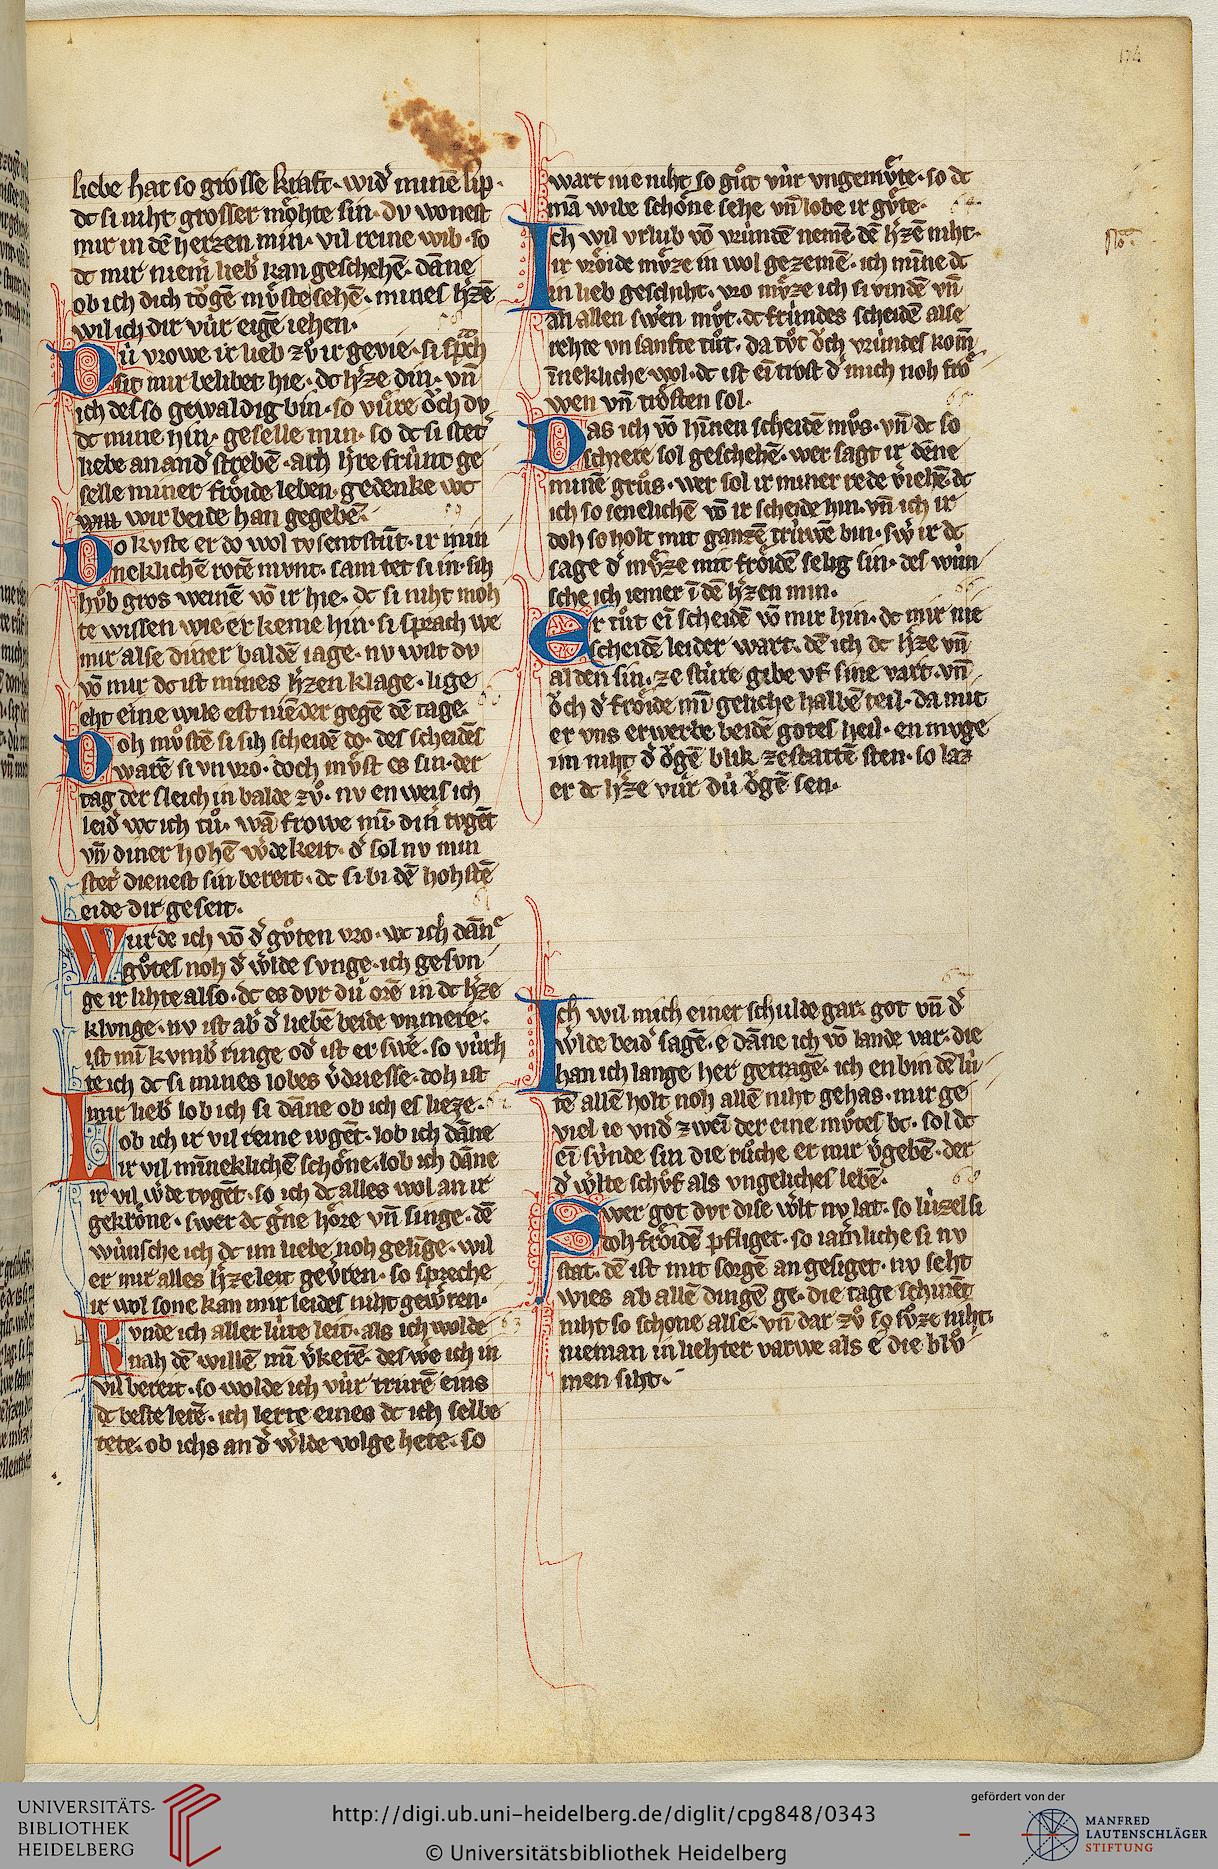 174
liebe hat so grosse kraft· wid᷑ minē lip·
dc si niht grosser moͤhte sin· dv wonest
mir in dē herzen min· vil reine wib· so
dc mir niem̄ lieb᷑ kan geschehē· dāne
ob ich dich toͮgē mvͤste sehē· mines h᷑zē
wil ich dir vúr eigē iehen·
Dú vrowe ir lieb zvͦ ir gevie· si sprach
sit mir belibet hie· dc h᷑ze din· vn̄
ich des so gewaldig bin· so vuͤre oͮch dv
dc mine hin· geselle min· so dc si stet᷑
liebe an and᷑ strebē· ach h᷑re frúnt ge
selle miner froͤide leben· gedenke wc
wir beide han gegebē·
Do kvste er do wol tvsentstūt· ir min
neklichē rotē mvnt· sam tet si in· sih
hvͦb gros weinē vō ir hie· dc si niht moh
te wissen wie er keme hin· si sprach we
mir alse diner baldē iage· nv wilt dv
vō mir dc ist mines h᷑zen klage· lige
eht eine wile est niēder gegē dē tage·
Doh mvͦstē si sih scheidē do· des scheidēs
warē si vnvro· doch mvͤst es sin· der
tag der sleich in balde zvͦ· nv enweis ich
leid᷑ wc ich tuͦ· wā frowe mī· din᷑ tvgēt
vn̄ diner hohē w᷑dekeit· d᷑ sol nv min
stet᷑ dienest sin bereit· dc si bi dē hohstē
eide dir geseit·
Wurde ich vō d᷑ gvͦten vro· wc ich dāne
gvͦtes noh d᷑ w᷑lde svnge· ich gesvn
ge ir lihte also· dc es dvr dú orē in dc h᷑ze
klvnge· nv ist ab᷑ d᷑ liebē beide vnmere·
ist mī kvmb᷑ ringe od᷑ ist er sw᷑e· so vúrh
te ich dc si mines lobes v᷑driesse· doh ist
mir lieb᷑ lob ich si dāne ob ich es lieze·
Lob ich ir vil reine ivgēt· lob ich dāne
ir vil mīneklichē schoͤne· lob ich dāne
ir vil w᷑de tvgēt· so ich dc alles wol an ir
gekroͤne· swer dc g᷑ne hoͤre vn̄ singe· dē
wúnsche ich dc im liebe noh gelīge· wil
er mir alles h᷑zeleit gev᷑ren· so spreche
ir wol sone kan mir leides niht gew᷑ren·
Kvnde ich aller lúte leit· als ich wolde
nah dē willē mī v᷑kerē· des w᷑e ich in
vil bereit· so wolde ich vúr trurē eins
dc beste lerē· ich lerte eines dc ich selbe
tete· ob ichs an d᷑ w᷑lde volge hete· so
wart nie niht so guͦt vúr vngemvͤte· so dc
mā wibe schoͤne sehe vn̄ lobe ir gvͤte·
Ich wil vrlub vō vrúndē nemē dē h᷑zē niht·
ir vroͤide mvͤze in wol gezemē· ich mīne dc
in lieb geschiht· vro mvͤze ich si vindē vn̄
an allen sw᷑en mvͦt· dc frúndes scheidē alse
rehte vnsanfte tuͦt· da tvͦt oͮch vrúndes kom̄
īnekliche wol· dc ist eī trost d᷑ mich noh froͤ
wen vn̄ troͤsten sol·
Das ich vō hīnen scheidē mvͦs· vn̄ dc so
schiere sol geschehē· wer sagt ir dēne
minē gruͦs· wer sol ir miner rede v᷑iehē· dc
ich so senelichē vō ir scheide hin· vn̄ ich ir
doh so holt mit ganzē trúwē bin· sw᷑ ir dc
sage d᷑ mvͤze mit froͤidē selig sin· des wún
sche ich iemer ī dē h᷑zen min·
Er tuͦt eī scheidē vō mir hin· dc mir nie
scheidē leider wart· dē ich dc h᷑ze vn̄
al den sin· ze stúre gibe vf sine vart· vn̄
oͮch d᷑ froͤide mī geliche halbē teil· da mit
er vns erwerbe beidē gotes heil· en mvge
im niht d᷑ oͮgē blik ze stattē sten· so laz
er dc h᷑ze vúr dú oͮgē sen·
Ich wil mich einer schulde gar· got vn̄ d᷑
w᷑lde beid᷑ sagē· e dāne ich vō lande var· die
han ich lange her getragē· ich enbin dē lú
tē allē holt noh allē niht gehas· mir ge
viel ie vnd᷑ zweī der eine mvͦtes bc· sol dc
eī svnde sin die ruͦche er mir v᷑gebē· der
d᷑ w᷑lte schvͦf als vngeliches lebē·
Swer got dvr dise w᷑lt nv lat· so lúzel si
doh froͤidē pfliget· so iam᷑liche si nv
stat· dē ist mit sorgē angesiget· nv seht
wies ab allē dingē ge· die tage schinēt
niht so schone alse· vn̄ dar zvͦ so svͤze niht·
nieman in liehter varwe als e die blvͦ
men siht·
UNIVERSITÄTS-
BIBLIOTHEK
HEIDELBERG
http://digi.ub.uni-heidelberg.de/diglit/cpg848/0343
© Universitätsbibliothek Heidelberg
gefördert von der
MANFRED
LAUTENSCHLÄGER
STIFTUNG